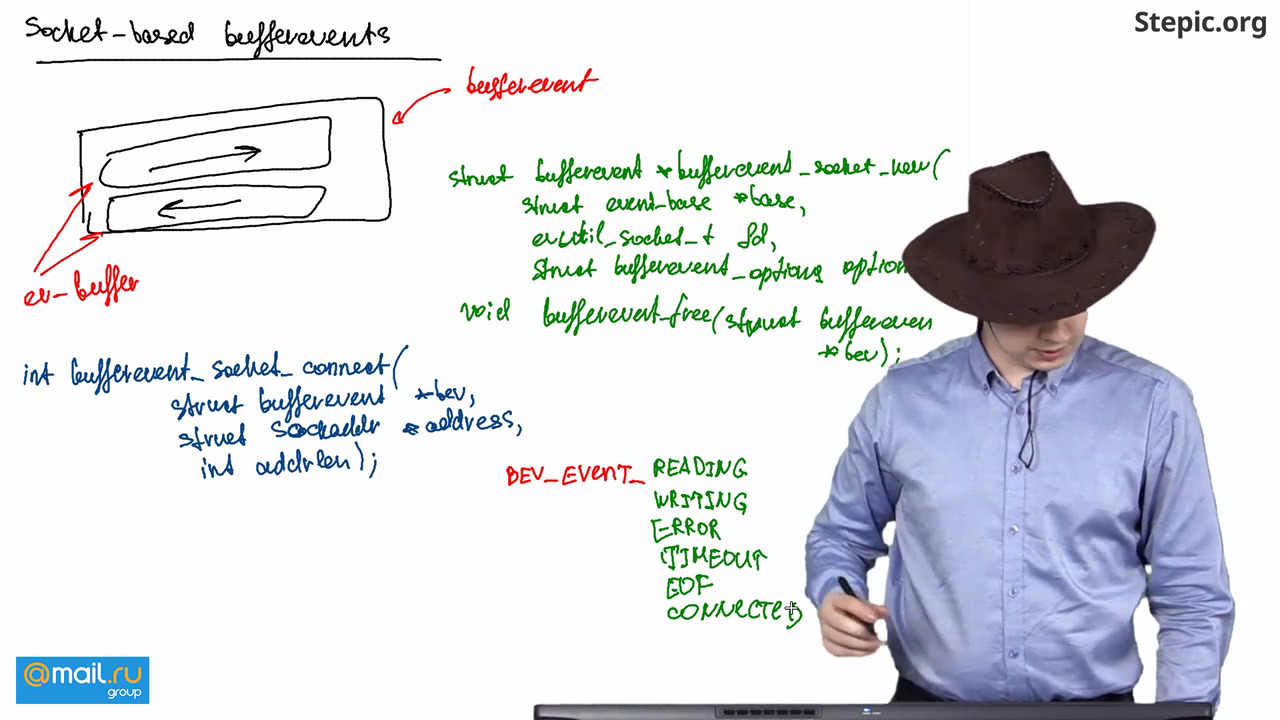 Stepic.org
Socket-based bufferevents
bufferevent
ev-buffer
struct bufferevent *bufferevent_socket_new(
struct event-base *base,
evutil_socket_t fd,
struct bufferevent_options option
void bufferevent_free(struct buffereven
*bev);
int bufferevent_socket_connect(
struct bufferevent *bev,
struct sockaddr *address,
int addrlen);
BEV_EVENT_READING
WRITING
ERROR
TIMEOUT
EOF
CONNECTED
@mail.ru
group